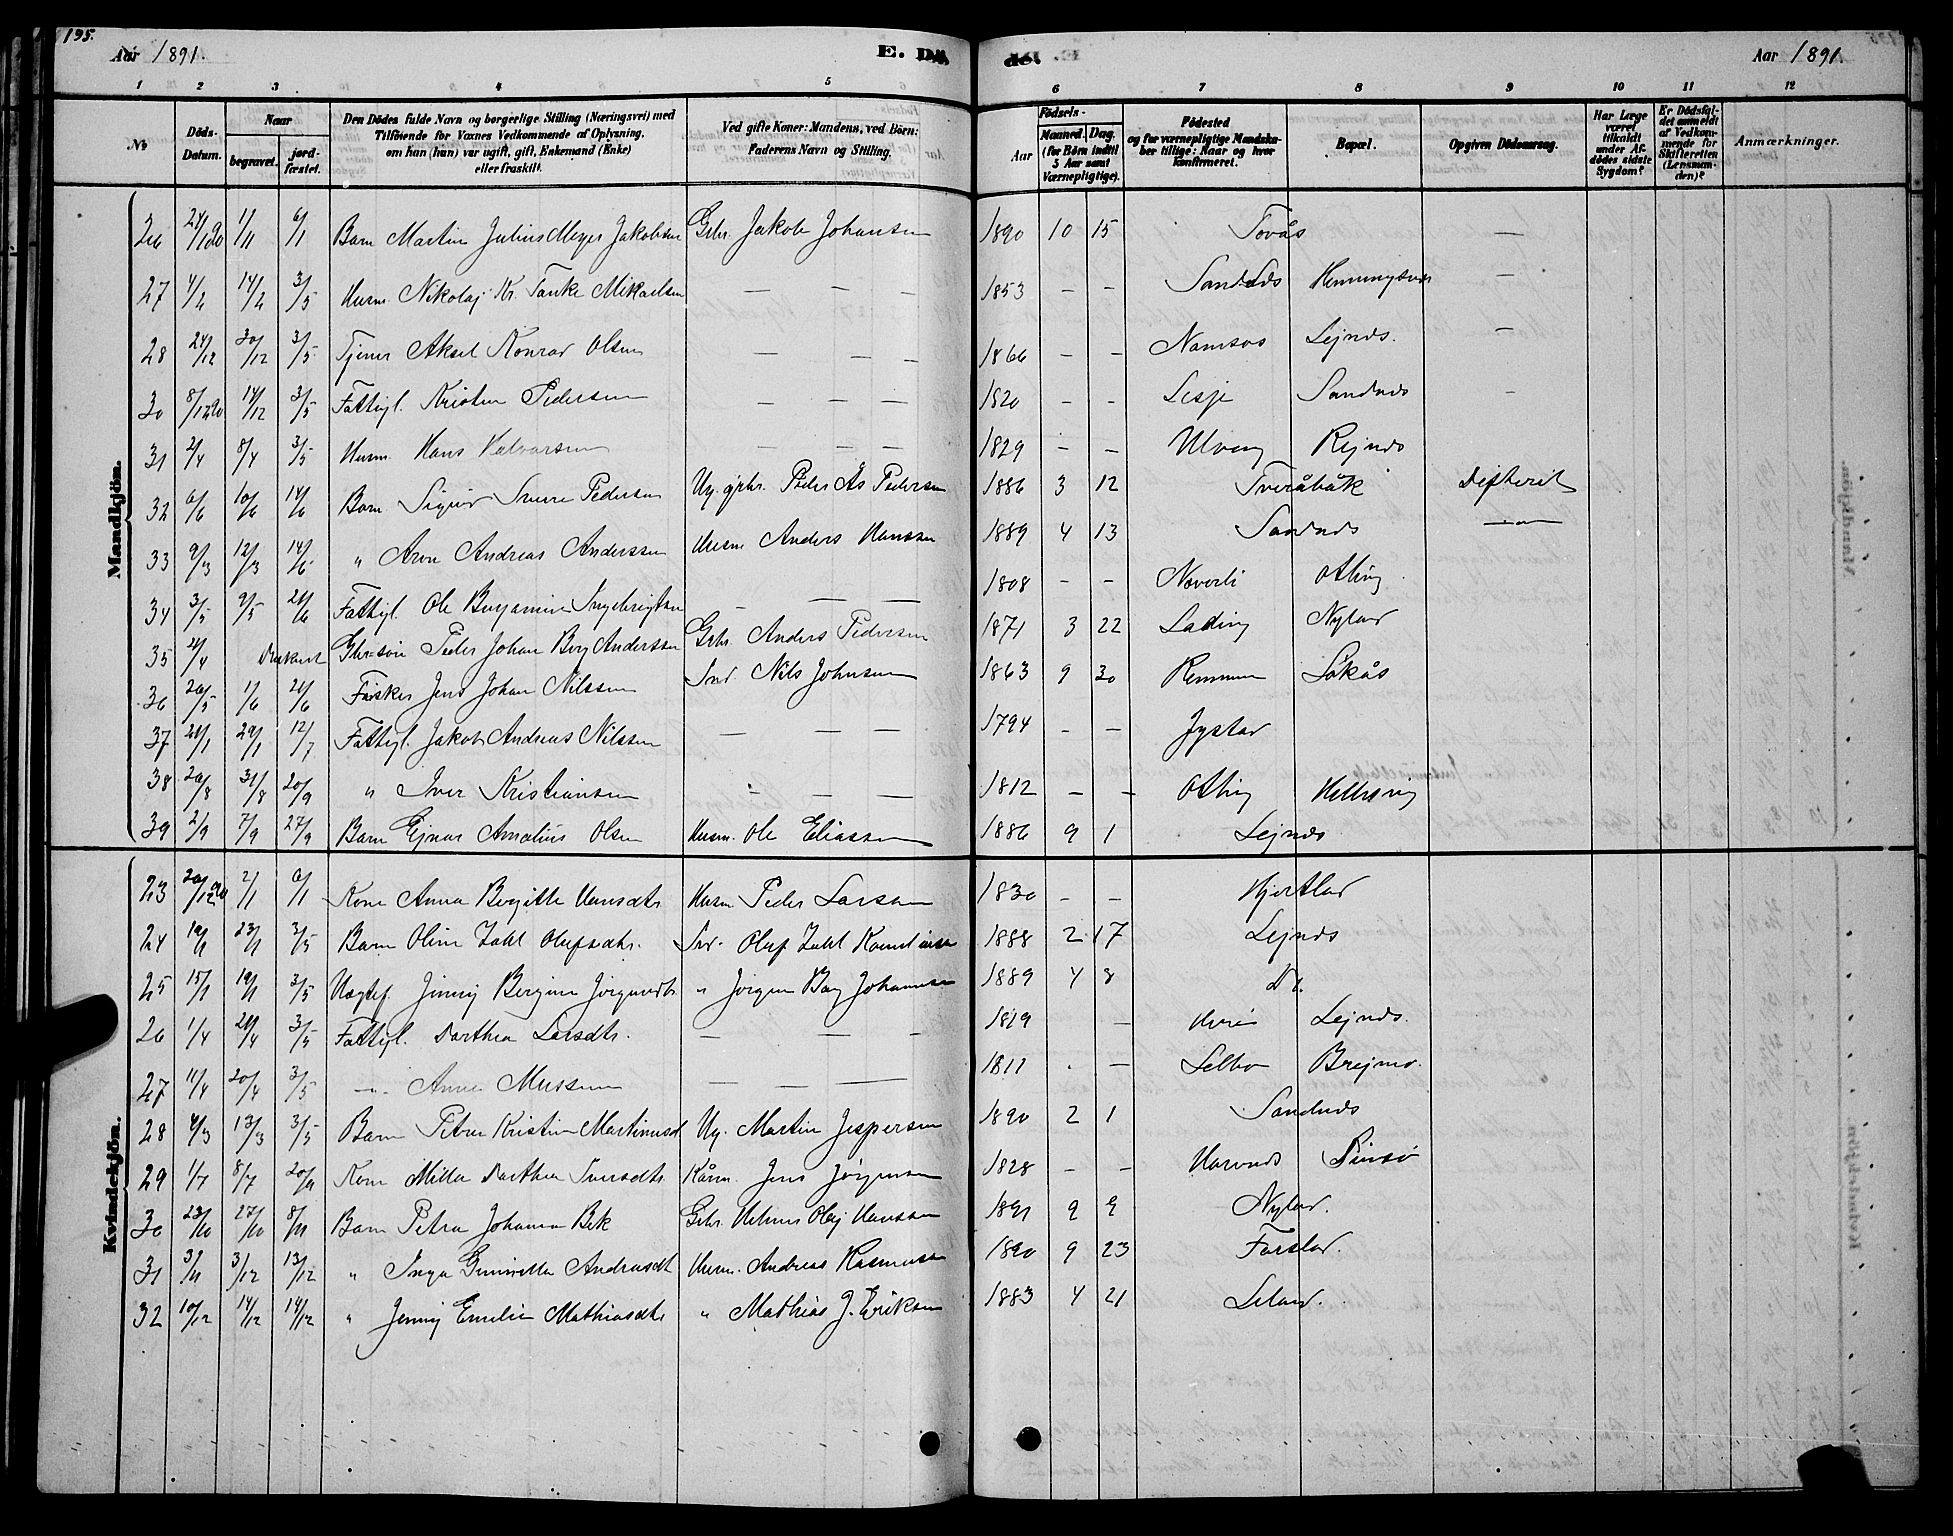 195.
Aar 1891. E. Dö- de. Aar 1891.
1 2 3 4 5 6 7 8 9 10 11 12
No
Döds-Datum.
Naar
begravet.
jord-fæstet.
Den Dödes fulde Navn og borgerlige Stilling (Næringsvei) med
Tilföiende for Voxnes Vedkommende af Oplysning,
om han (hun) var ugift, gift, Enkemand (Enke)
eller fraskilt.
Ved gifte Koner: Mandens, ved Börn:
Faderens Navn og Stilling.
Födsels-
Aar
Maaned. Dag.
(for Börn indtil
5 Aar samt
Værnepligtige).
Födested
og for værnepligtige Mandska-
ber tillige: Naar og hvor
konfirmeret.
Bopæl.
Opgiven Dödsaarsag.
Har Læge
været
tilkaldt
under Af-
dödes sidste
Sygdom?
Er Dödsfal-
det anmeldt
af Vedkom-
mende for
Skifteretten
(Lensman-
den)?
Anmærkninger.
Mandkjön.
26 24/1 1/1 6/1 Barn Martin Julius Meyer Jakobsen Grbr. Jakob Johansen 1890 10 15 Tovås —
27 4/2 14/2 3/5 Husm. Nikolaj Kr. Tanke Mikaelsen — — — 1853 — — Sandnds Hemmingsnds —
28 24/12 30/12 3/5 Tjener Aksel Konrad Olsen — — — 1866 — — Namsos Lejnds. —
30 8/12 90 14/12 3/5 Fattigl. Kristen Pedersen — — — 1820 — — Lesje Sandnds —
31 2/4 8/4 3/5 Husm. Hans Halvorsen — — — 1829 — — Ulvang Rejnds
32 6/6 10/6 14/6 Barn Sigurd Sverre Pedersen Ug. grbr. Peder As Pedersen 1886 3 12 Tveråbåk Defterit
33 9/3 12/3 14/6 " Arne Andreas Anderssen Husm Anders Hanssen 1889 4 13 Sandnds —"—
34 3/5 9/5 21/6 Fattigl. Ole Benjamin Ingebrigtsen — — — 1808 — — Noverli Otting
35 21/4 Druknet Gbr.søn Peder Johan Berg Anderssen Grbr. Anders Pedersen 1871 3 22 Lading Nyland
36 20/5 1/6 21/6 Fisker Jens Johan Nilssen Ind. Nils Johnsen 1863 9 30 Remmen Låkås
37 21/1 29/1 12/7 Fattigl. Jakob Andreas Nilssen — — — 1794 — — Jystad
38 20/8 31/8 20/9 " Iver Kristiansen — — — 1812 — — Otting Hellesvig
39 2/9 7/9 27/9 Barn Ejnar Amatius Olsen Husm. Ole Eliassen 1886 9 1 Lejnds
Kvindekjön.
23 20/12 90 2/1 6/1 Kone Anna Birgitte Hansdtr Husm Peder Larsen 1830 — — Hjortland
24 19/1 23/1 3/5 Barn Oline Zahl Olufsdtr. Ind. Oluf Zahl 1888 2 17 Lejnds
25 15/1 19/1 3/5 Jenny Bergine Jørgensdtr " Jørgen Bay Johannesen 1889 4 8 Do.
26 1/4 21/4 3/5 Fattigl. Dorthea Larsdtr. — — - 1819 — Lejnds.
27 11/4 20/4 3/5 —"— Anne — — — 1811 . — Selbo Brejmo.
28 4/3 13/3 3/5 Barn Petra Kristine Martinusd. Ug. Martin Jespersen 1890 2 1 Sandnds
29 1/7 8/7 20/9 Kone Milla Dorthea Iversdtr. Kårm. Jens Jørgensen 1828 — — Havnnds
30 23/10 27/10 8/11 Barn Petra Johanna Bek Grbr. Helmer Olaj Hanssen 1891 9 9 Nyland.
31 3/11 3/12 13/12 " Inga Andreasdt Husm. Andreas Rasmussen 1890 9 23 Forsland.
32 10/12 14/12 14/12 " Jenny Emelie Mathiasdtr " Mathias J. Eriksen 1883 4 21 Leland.